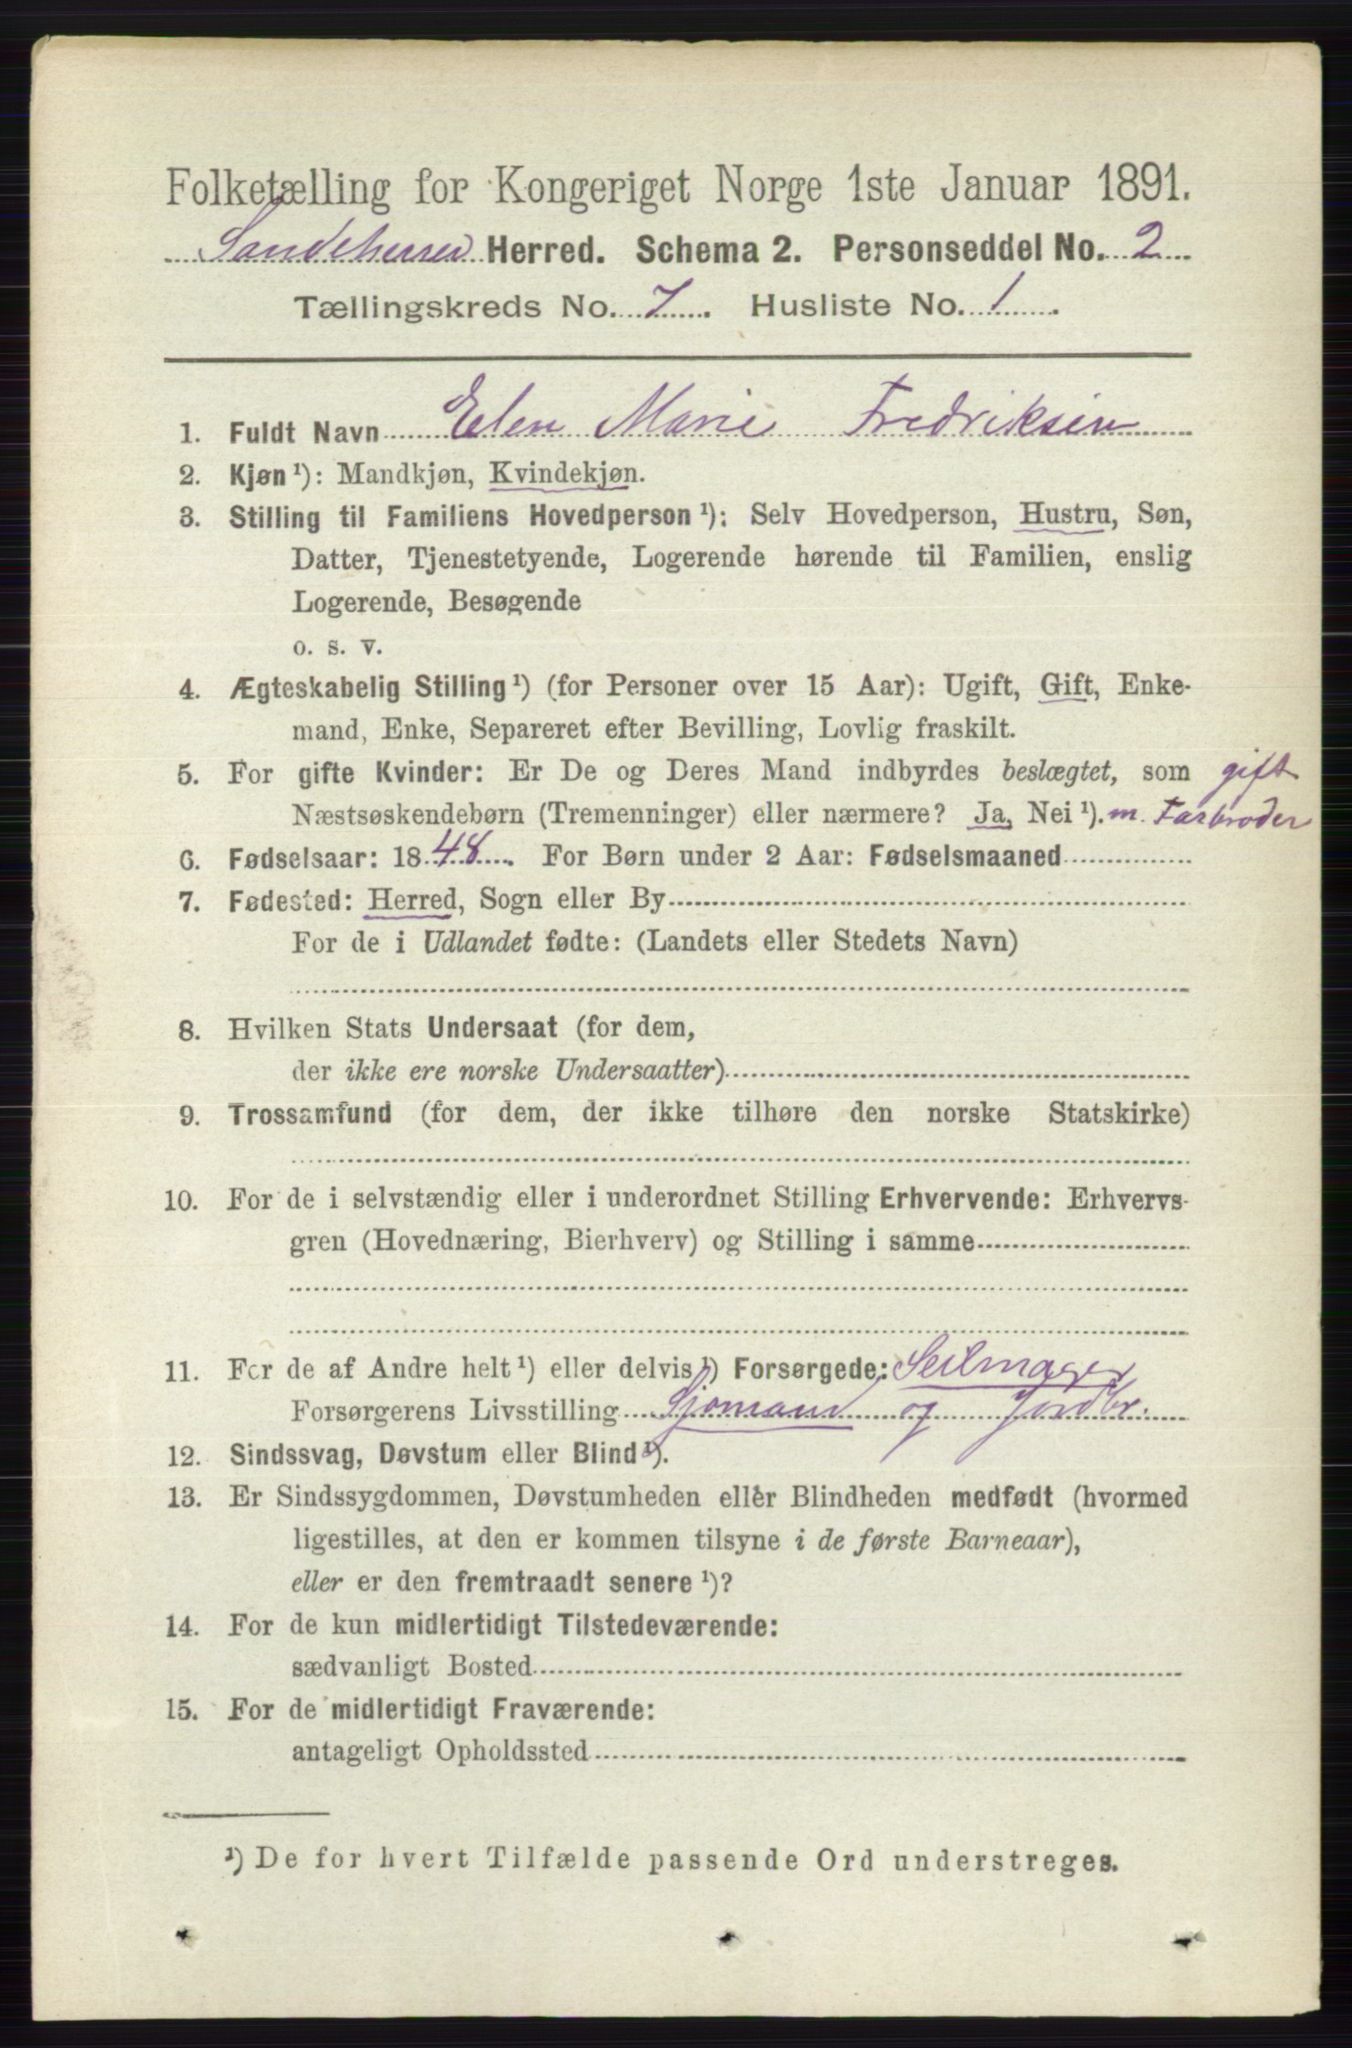 Folketælling for Kongeriget Norge 1ste Januar 1891.
Sandeherred Herred. Schema 2. Personseddel No. 2
Tællingskreds No. 7. Husliste No. 1
1. Fuldt Navn Elen Marie Fredriksen
2. Kjøn ¹): Mandkjøn, Kvindekjøn.
3. Stilling til Familiens Hovedperson ¹): Selv Hovedperson, Hustru, Søn,
Datter, Tjenestetyende, Logerende hørende til Familien, enslig
Logerende, Besøgende
o. s. v.
4. Ægteskabelig Stilling ¹) (for Personer over 15 Aar): Ugift, Gift, Enke-
mand, Enke, Separeret efter Bevilling, Lovlig fraskilt.
5. For gifte Kvinder: Er De og Deres Mand indbyrdes beslægtet, som gift
Næstsøskendebørn (Tremenninger) eller nærmere? Ja, Nei ¹). m. Farbroder
6. Fødselsaar: 1848. For Børn under 2 Aar: Fødselsmaaned
7. Fødested: Herred, Sogn eller By
For de i Udlandet fødte: (Landets eller Stedets Navn)
8. Hvilken Stats Undersaat (for dem,
der ikke ere norske Undersaatter)
9. Trossamfund (for dem, der ikke tilhøre den norske Statskirke)
10. For de i selvstændig eller i underordnet Stilling Erhvervende: Erhvervs-
gren (Hovednæring, Bierhverv) og Stilling i samme
11. For de af Andre helt ¹) eller delvis ¹) Forsørgede: Seilmager
Forsørgerens Livsstilling Sjømand og Jordbr.
12. Sindssvag, Døvstum eller Blind ¹).
13. Er Sindssygdommen, Døvstumheden eller Blindheden medfødt (hvormed
ligestilles, at den er kommen tilsyne i de første Barneaar),
eller er den fremtraadt senere ¹)?
14. For de kun midlertidigt Tilstedeværende:
sædvanligt Bosted
15. For de midlertidigt Fraværende:
antageligt Opholdssted
¹) De for hvert Tilfælde passende Ord understreges.